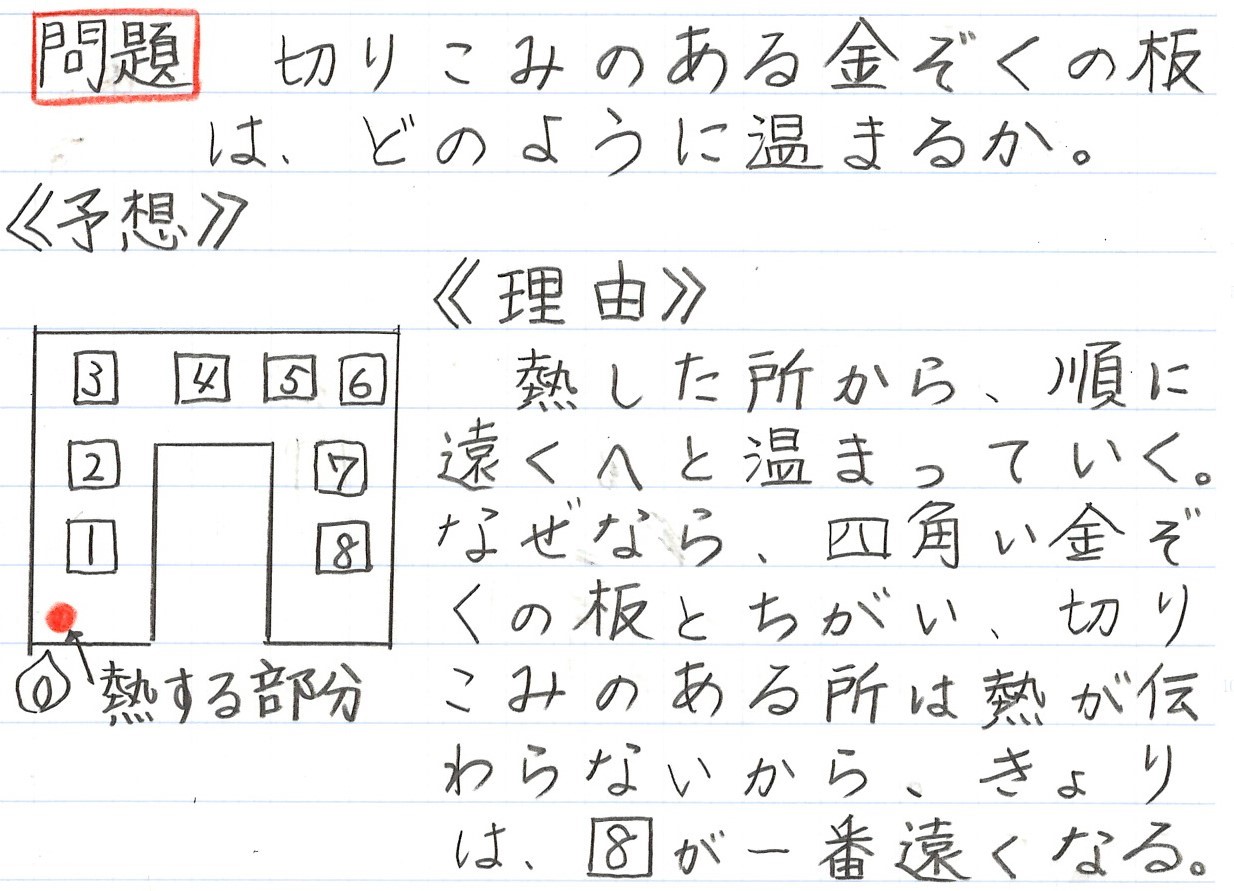 問題 切りこみのある金ぞくの板
は、どのように温まるか。
≪予想≫
≪理由≫
3 4 5 6
2 7
1 8
熱する部分
熱した所から、順に
遠くへと温まっていく。
なぜなら、四角い金ぞ
くの板とちがい、切り
こみのある所は熱が伝
わらないから、きょり
は、8が一番遠くなる。